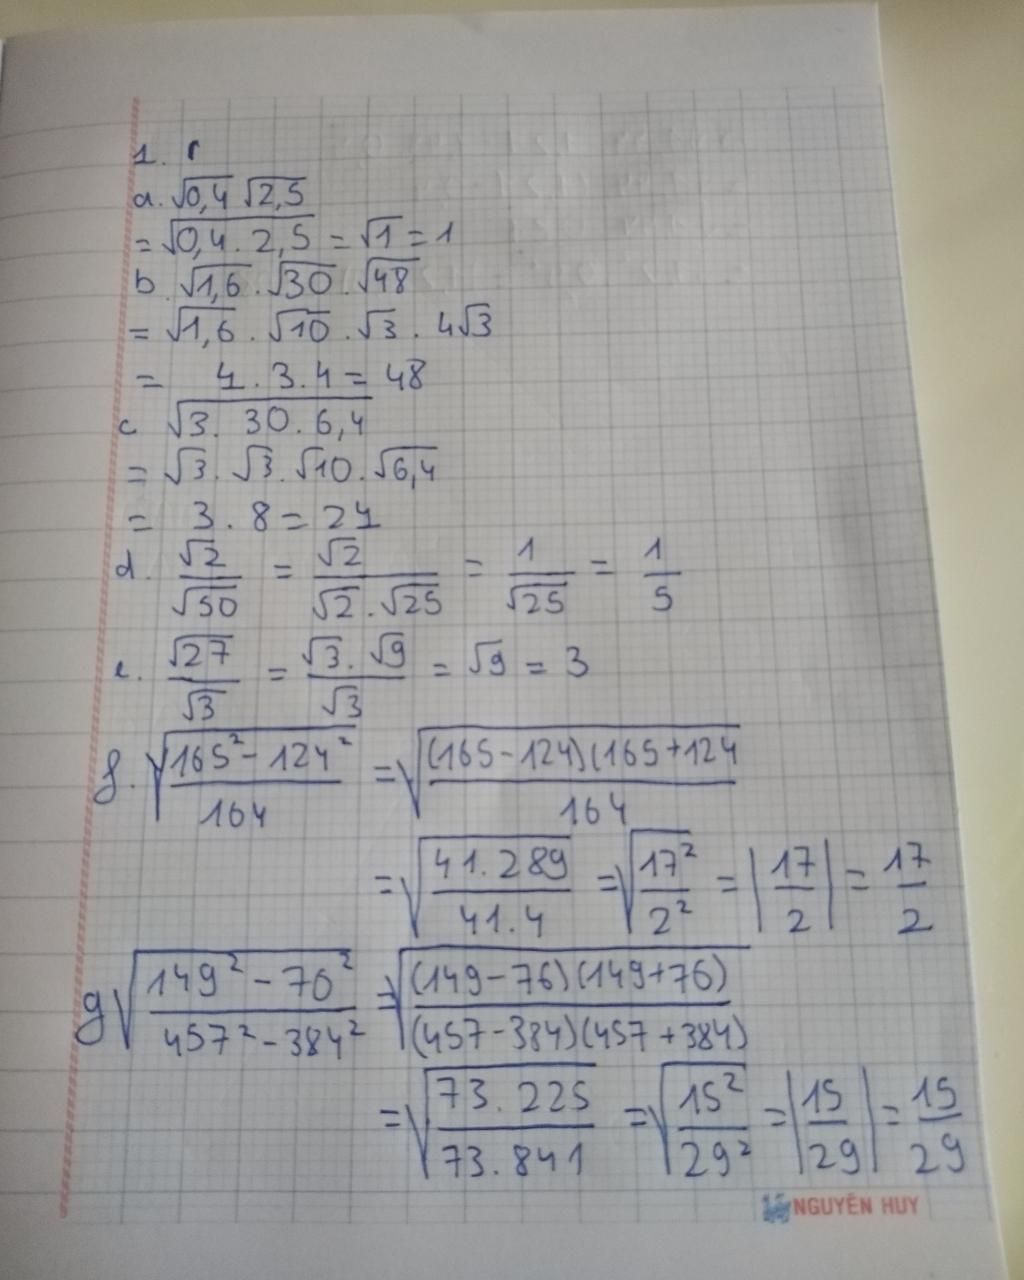 1.
a. √0,4 √2,5
= √(0,4 . 2,5) = √1 = 1
b √1,6 . √30 . √48
= √1,6 . √10 . √3 . 4√3
= 4 . 3 . 4 = 48
c √(3 . 30 . 6,4)
= √3 . √3 . √10 . √6,4
= 3 . 8 = 24
d. √2/√50 = √2/(√2 . √25) = 1/√25 = 1/5
e. √27/√3 = (√3 . √9)/√3 = √9 = 3
f. √((165² - 124²)/164) = √((165-124)(165+124/164)
= √((41.289)/(41.4)) = √(17²/2²) = |17/2| = 17/2
g √((149² - 76²)/(457² - 384²)) = √((149-76)(149+76)/(457-384)(457+384))
= √((73.225)/(73.841)) = √(15²/29²) = |15/29| = 15/29
NGUYÊN HUY